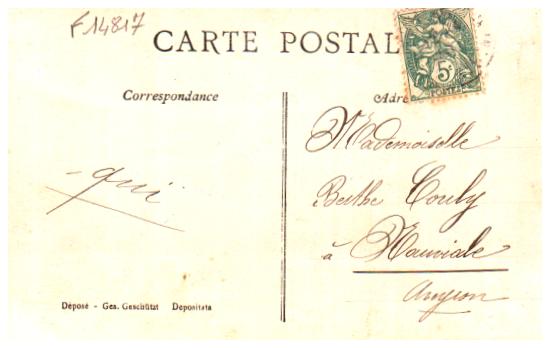 F 14817
CARTE POSTALE
5c
POSTES
Correspondance
Adresse
Mademoiselle
Berthe Couly
à Nauviale
Aveyron
qui
Déposé - Ges. Geschützt Depositata